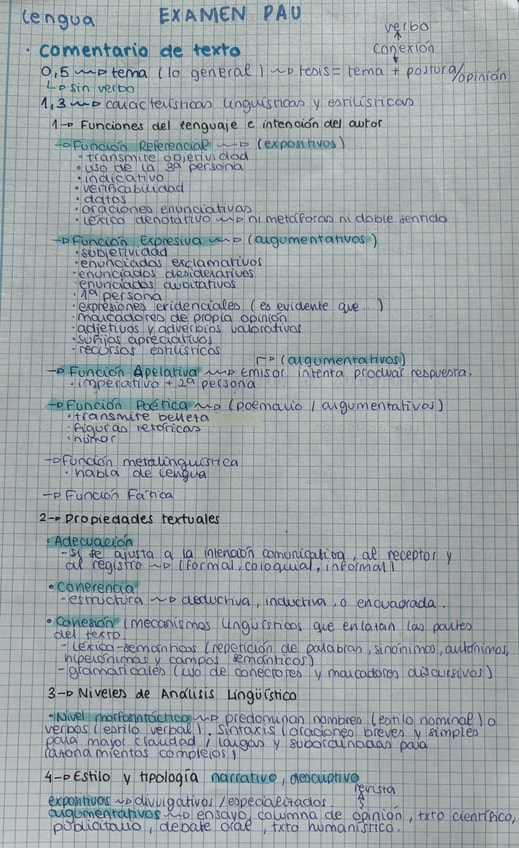 Lengua EXAMEN PAU
verbo
· comentario de texto conexión
0,5 ~~> tema (lo general) ~~> tesis = tema + postura/opinión
↳ sin verbo
1,3 ~~> características lingüísticas y estilísticas
1-> Funciones del lenguaje e intención del autor
-> Función Referencial ~~> (expositivos)
· transmite objetividad
· uso de la 3ª persona
· indicativo
· verificabilidad
· datos
· oraciones enunciativas
· léxico denotativo ~~> ni metáforas ni doble sentido
-> Función Expresiva ~~> (argumentativos)
· subjetividad
· enunciados exclamativos
· enunciados desiderativos
· enunciados dubitativos
· 1ª persona
· expresiones evidenciales (es evidente que...)
· marcadores de propia opinión
· adjetivos y adverbios valorativos
· sufijos apreciativos
· recursos estilísticos
-> (argumentativos)
-> Función Apelativa ~~> Emisor intenta producir respuesta.
· imperativo + 2ª persona
-> Función Poética ~~> (poemario / argumentativos)
· transmite belleza
· figuras retóricas
· humor
-> Función metalingüística
· habla de lengua
-> Función Fática
2-> Propiedades textuales
· Adecuación
- Si se ajusta a la intención comunicativa, al receptor y
al registro ~~> (formal, coloquial, informal)
· Coherencia
- estructura ~~> deductiva, inductiva, o encuadrada.
· Cohesión (mecanismos lingüísticos que enlazan las partes
del texto.
- Léxico-semánticas (repetición de palabras, sinónimos, antónimos,
hiperónimos y campos semánticos)
- gramaticales (uso de conectores y marcadores discursivos)
3-> Niveles de Análisis Lingüístico
· Nivel morfosintáctico ~~> predominan nombres (estilo nominal) o
verbos (estilo verbal). Sintaxis (oraciones breves y simples
para mayor claridad / largas y subordinadas para
razonamientos complejos)
4-> Estilo y tipología narrativo, descriptivo
revista
expositivos ~~> divulgativos / especializados.
argumentativos ~~> ensayo, columna de opinión, txto científico,
publicitario, debate oral, txto humanístico.